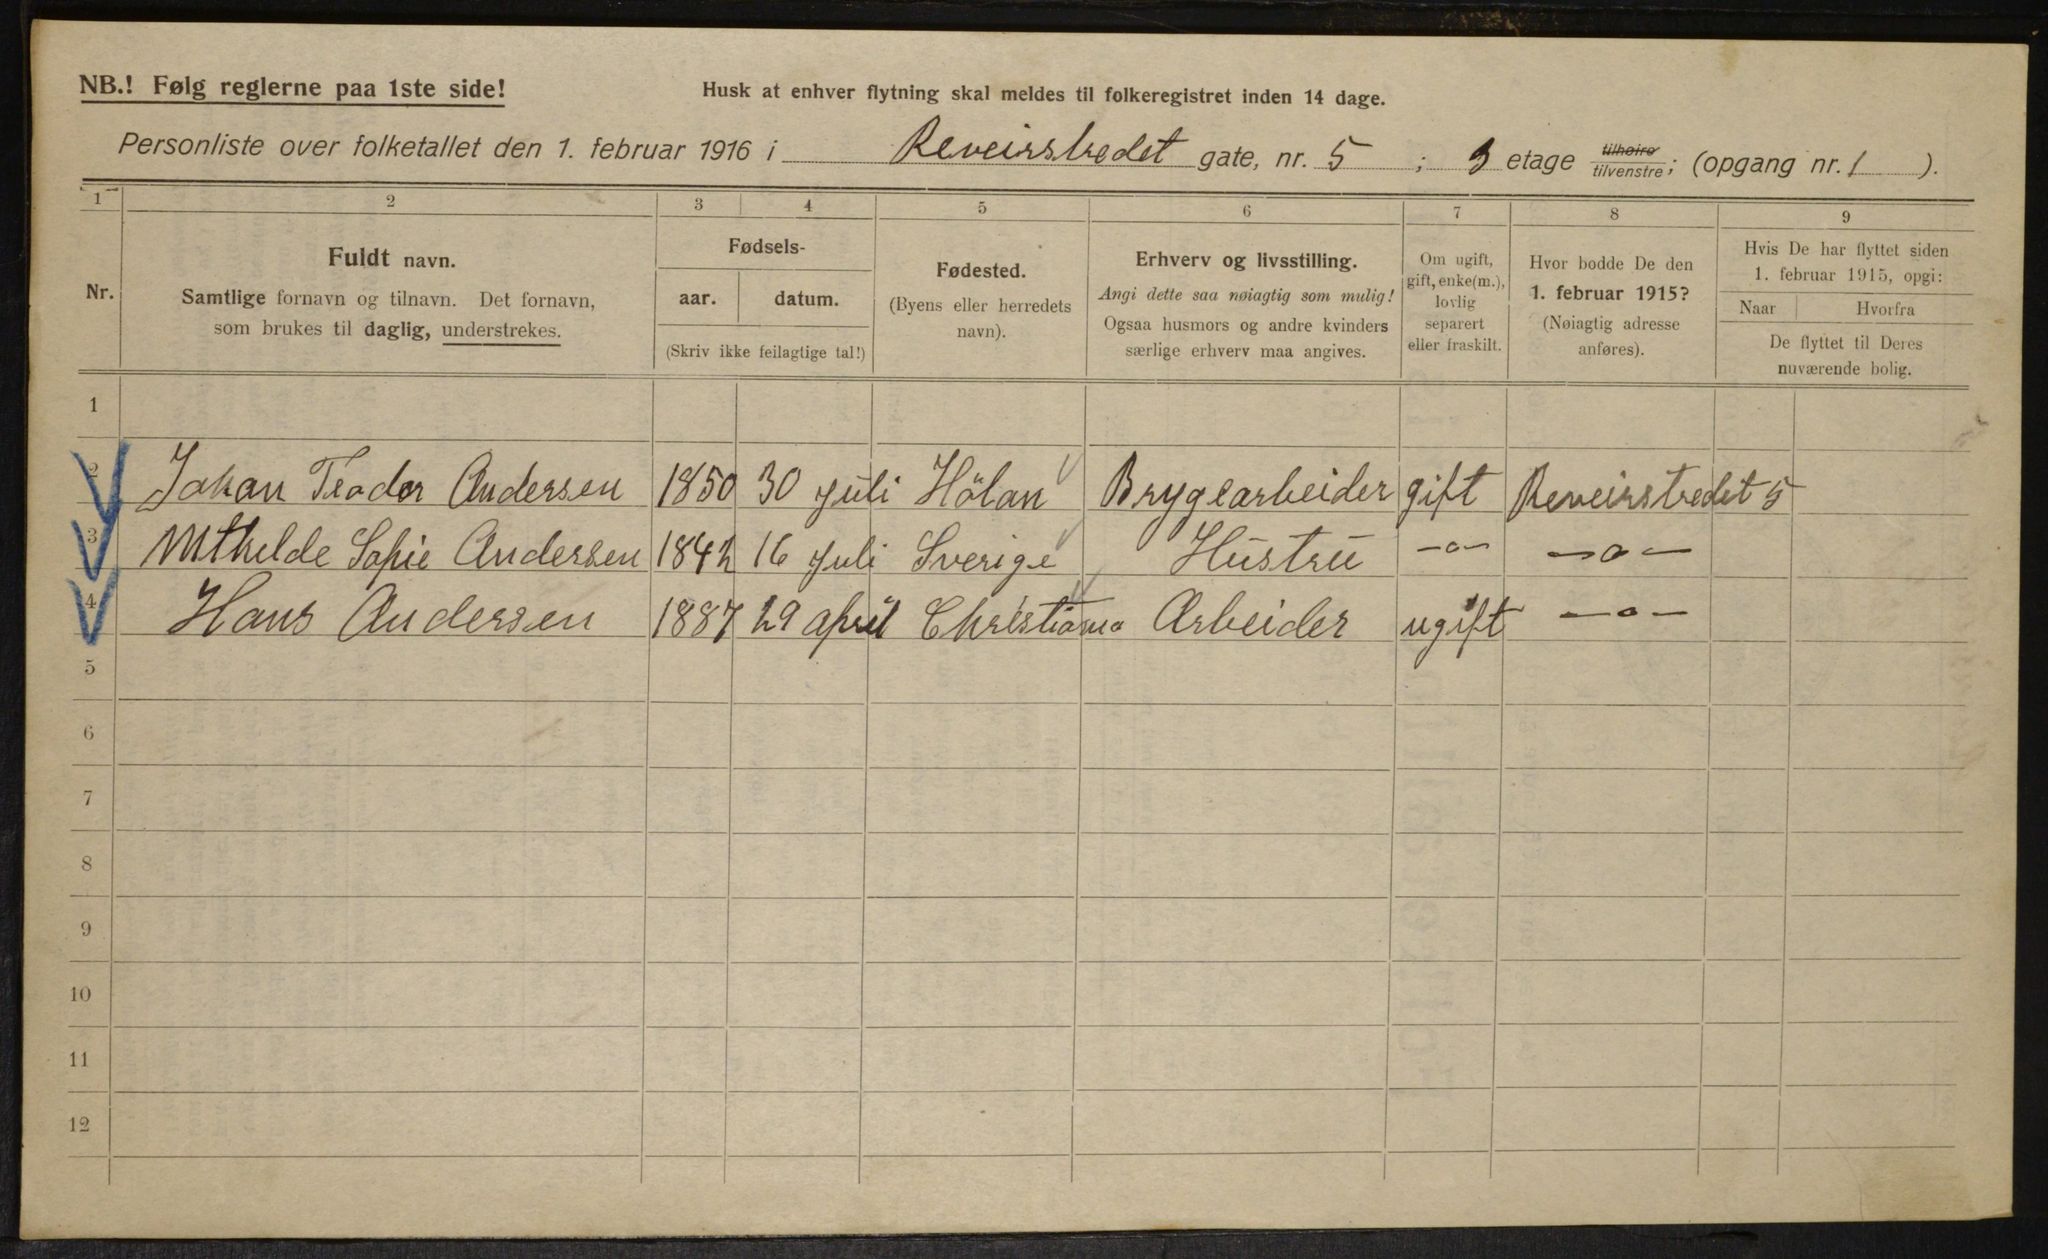 NB.! Følg reglerne paa 1ste side!
Husk at enhver flytning skal meldes til folkeregistret inden 14 dage.
Personliste over folketallet den 1. februar 1916 i Reveirstredet gate, nr. 5 ; 3 etage tilhøire tilvenstre; (opgang nr. 1 ).
1 2 3 4 5 6 7 8 9
Nr.
Fuldt navn.
Samtlige fornavn og tilnavn. Det fornavn,
som brukes til daglig, understrekes.
Fødsels-
aar. datum.
(Skriv ikke feilagtige tal!)
Fødested.
(Byens eller herredets
navn).
Erhverv og livsstilling.
Angi dette saa nøiagtig som mulig!
Ogsaa husmors og andre kvinders
særlige erhverv maa angives.
Om ugift,
gift, enke(m.),
lovlig
separert
eller fraskilt.
Hvor bodde De den
1. februar 1915?
(Nøiagtig adresse
anføres).
Hvis De har flyttet siden
1. februar 1915, opgi:
Naar Hvorfra
De flyttet til Deres
nuværende bolig.
1
2 Johan Teodor Andersen 1850 30 juli Hölan Brygearbeider gift Reveirstredet 5
3 Mthelde Sofie Andersen 1842 16 juli Sverige Hustru —o— —o—
4 Hans Andersen 1887 29 april Christiania Arbeider ugift —o—
5
6
7
8
9
10
11
12